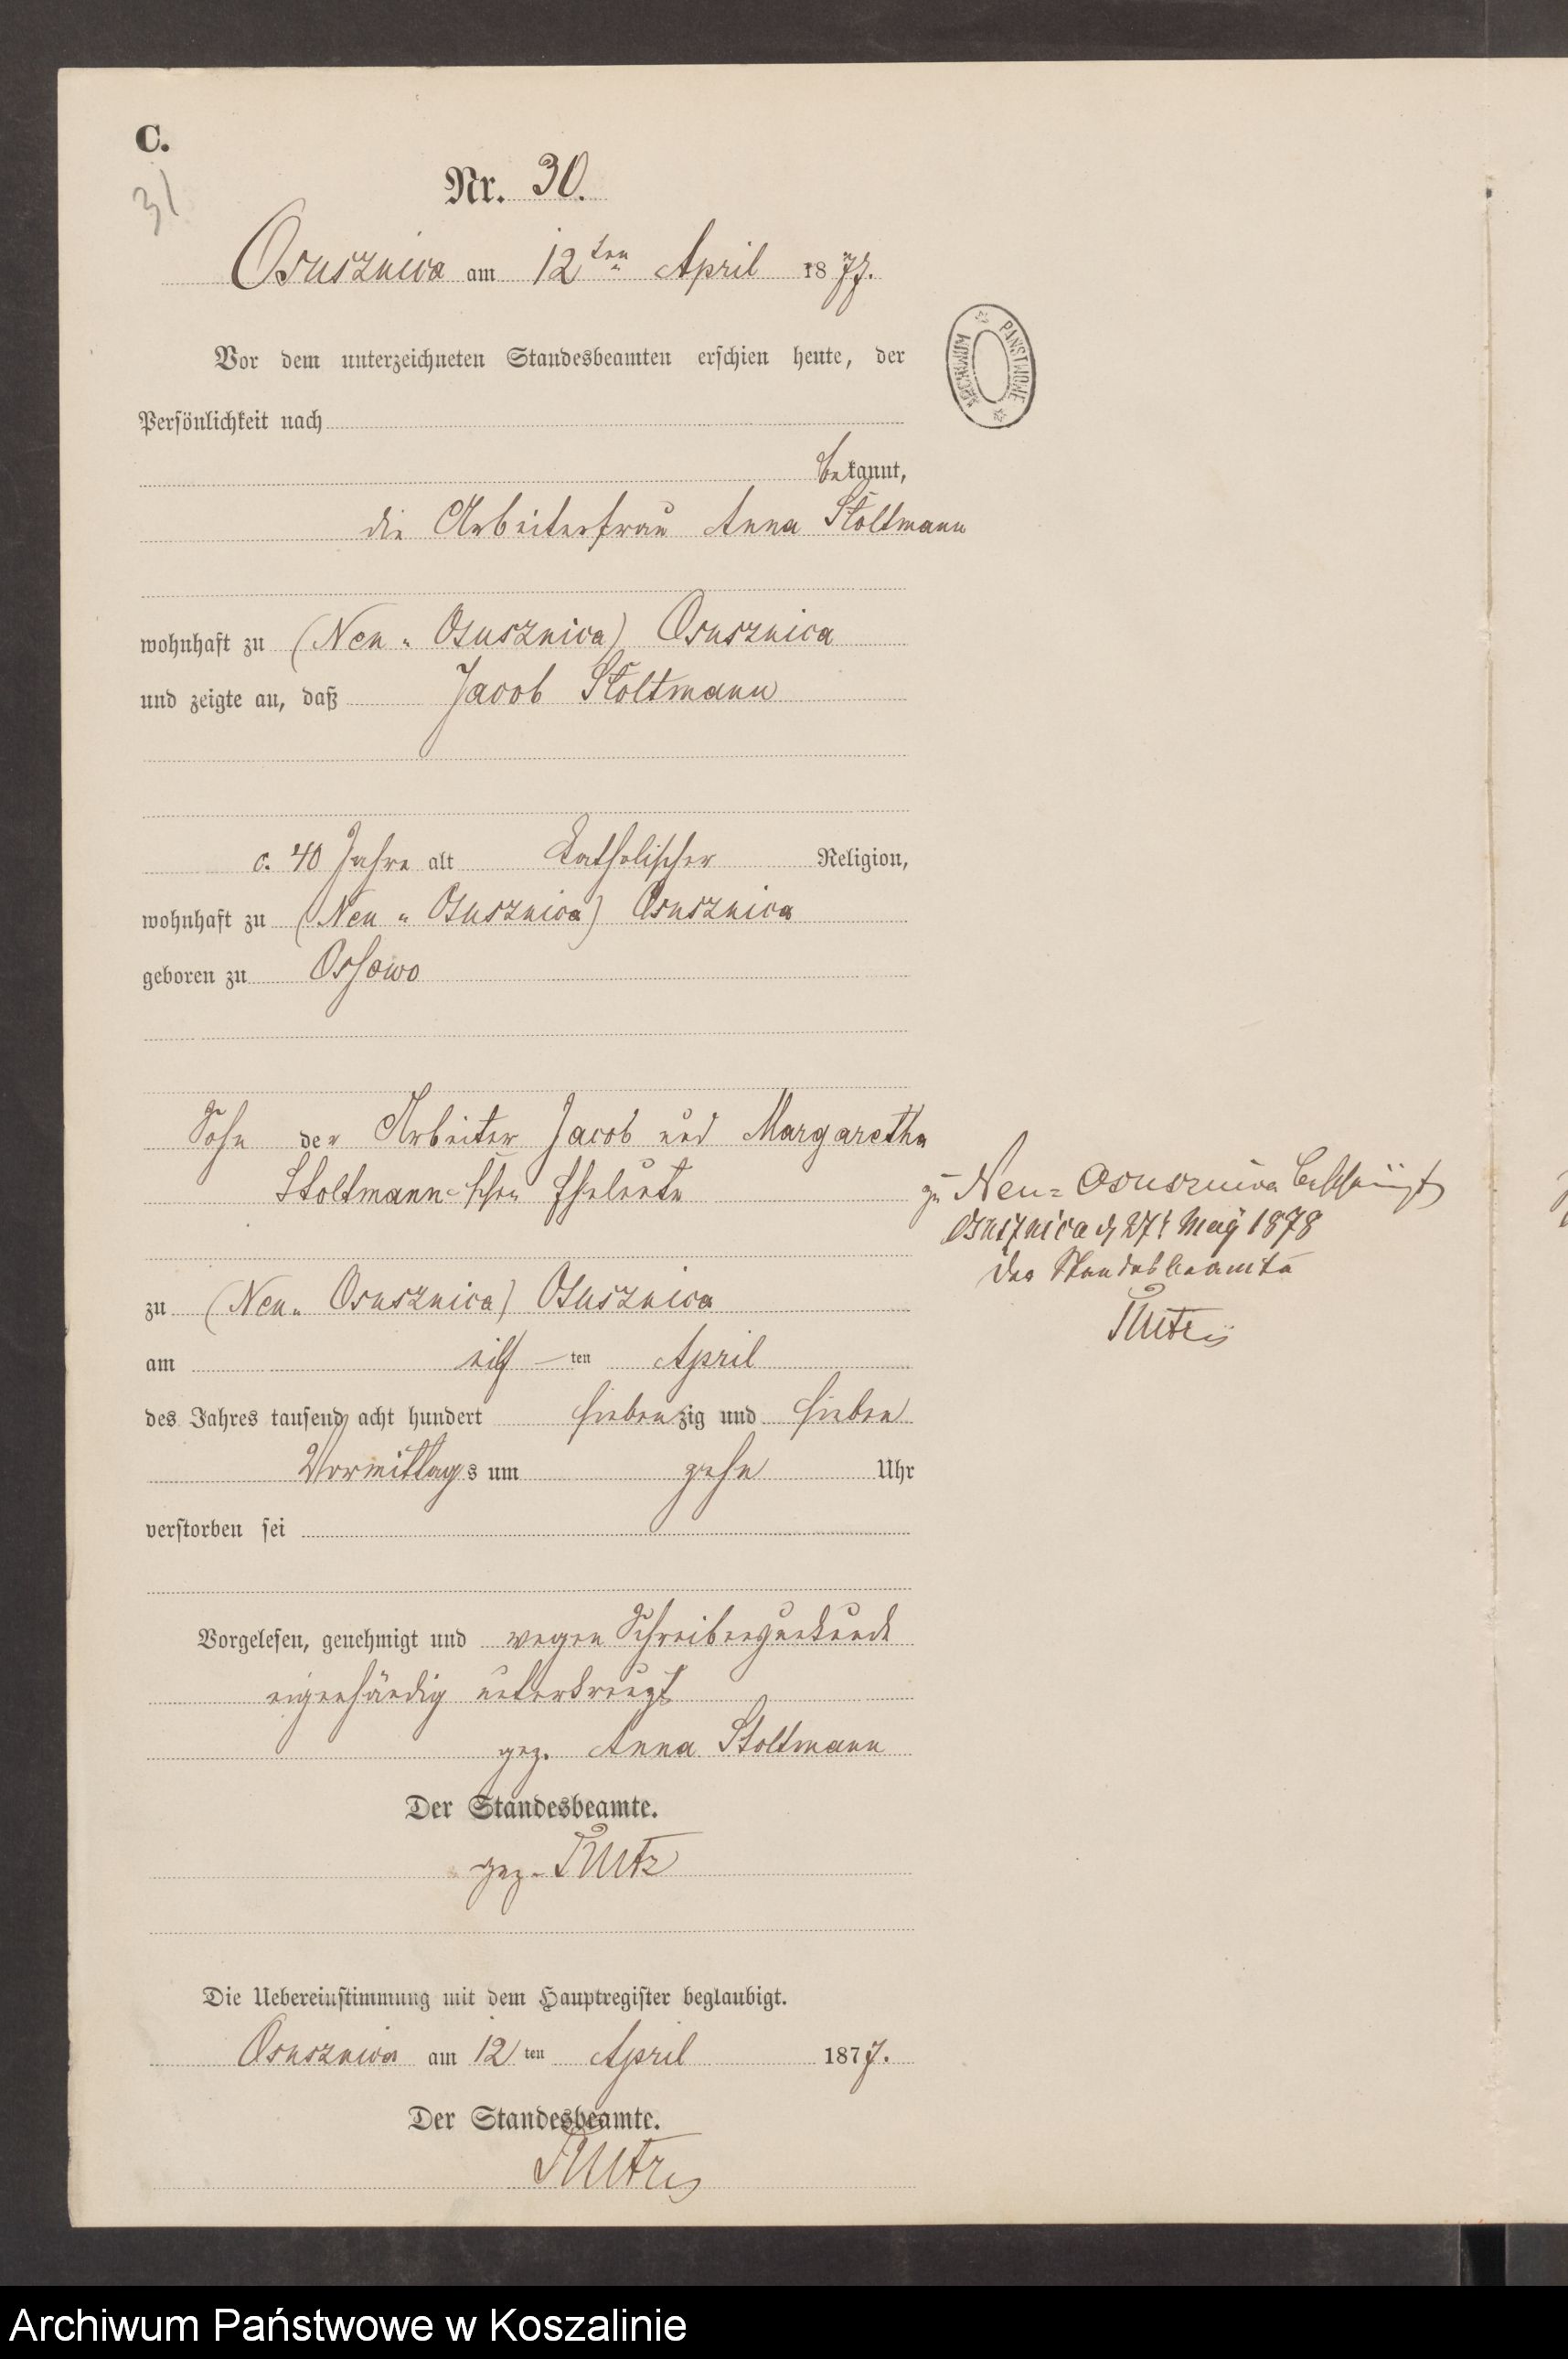 C.
31
Nr. 30.
Osusznica am 12ten April 1877.
ARCHIWUM PAŃSTWOWE
Vor dem unterzeichneten Standesbeamten erschien heute, der
Persönlichkeit nach
bekannt,
die Arbeiterfrau Anna Stoltmann
wohnhaft zu (Neu-Osusznica) Osusznica
und zeigte an, daß Jacob Stoltmann
c. 40 Jahre alt katholischer Religion,
wohnhaft zu (Neu-Osusznica) Osusznica
geboren zu Ossowo
Sohn der Arbeiter Jacob und Margaretha
Stoltmann-schen Eheleute
zu (Neu-Osusznica) Osusznica
am eilf ten April
des Jahres tausend acht hundert siebenzig und sieben
Vormittags um zehn Uhr
verstorben sei
zu Neu-Osusznica
Osusznica d. 27t May 1878
Der Standesbeamte
Vorgelesen, genehmigt und wegen Schreibensunkunde
eigenhändig unterkreuzt
gez. Anna Stoltmann
Der Standesbeamte.
gez.
Die Uebereinstimmung mit dem Hauptregister beglaubigt.
Osusznica am 12 ten April 1877.
Der Standesbeamte.
Archiwum Państwowe w Koszalinie